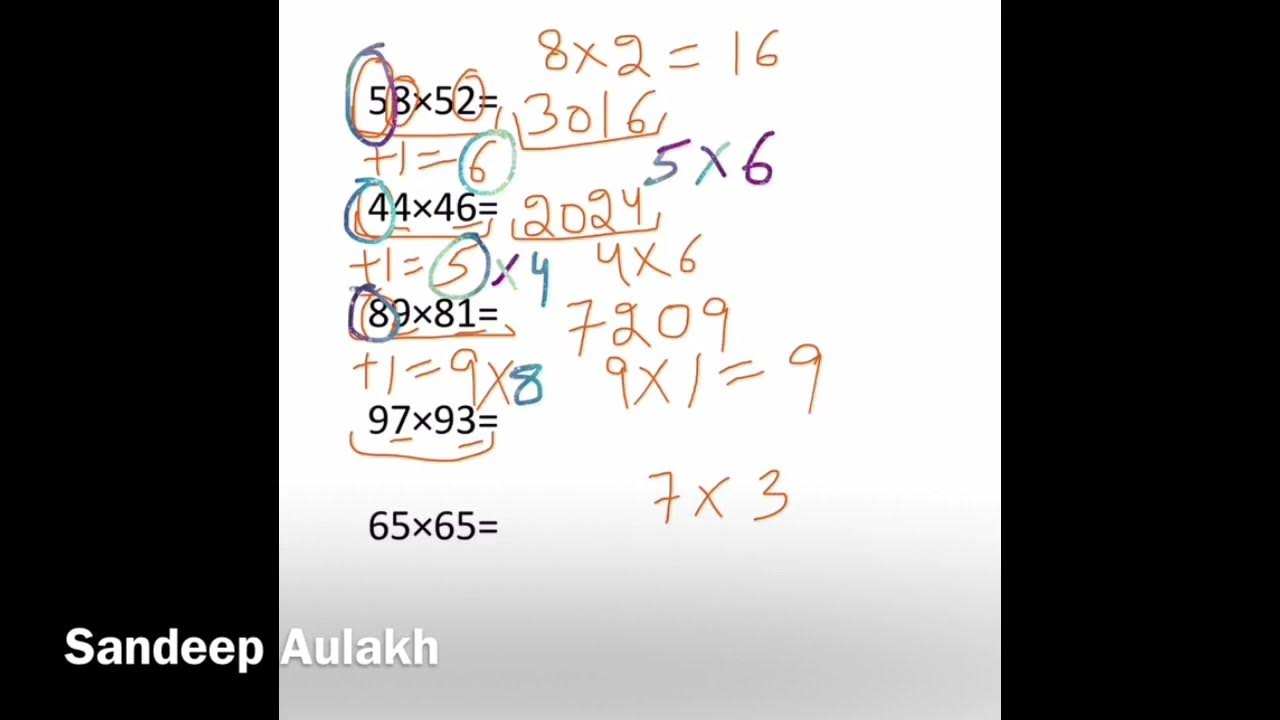 8×2=16
58×52= 3016
+1=6 5×6
44×46= 2024
+1=5×4 4×6
89×81= 7209
+1=9×8 9×1=9
97×93=
7×3
65×65=
Sandeep Aulakh